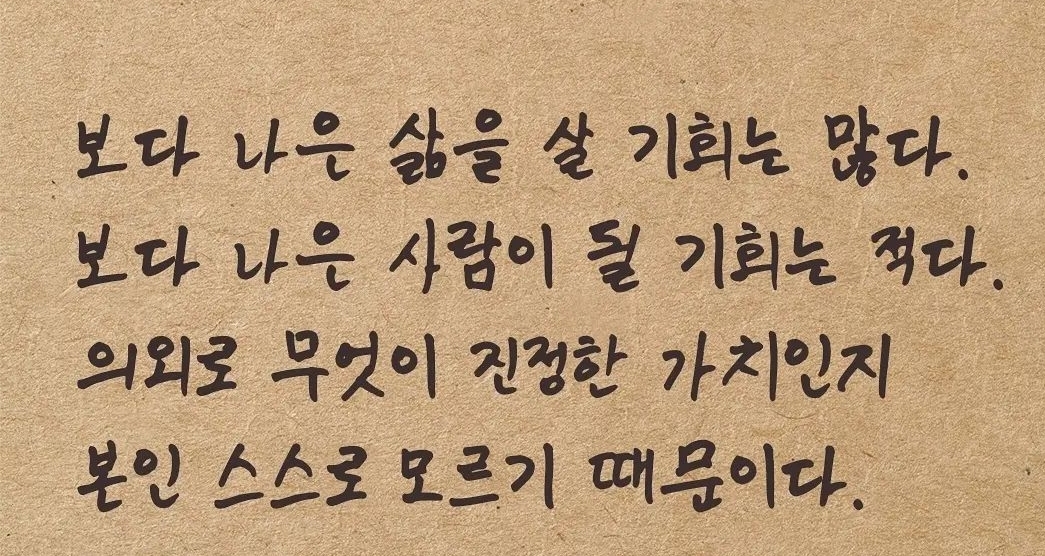 보다 나은 삶을 살 기회는 많다.
보다 나은 사람이 될 기회는 적다.
의외로 무엇이 진정한 가치인지
본인 스스로 모르기 때문이다.